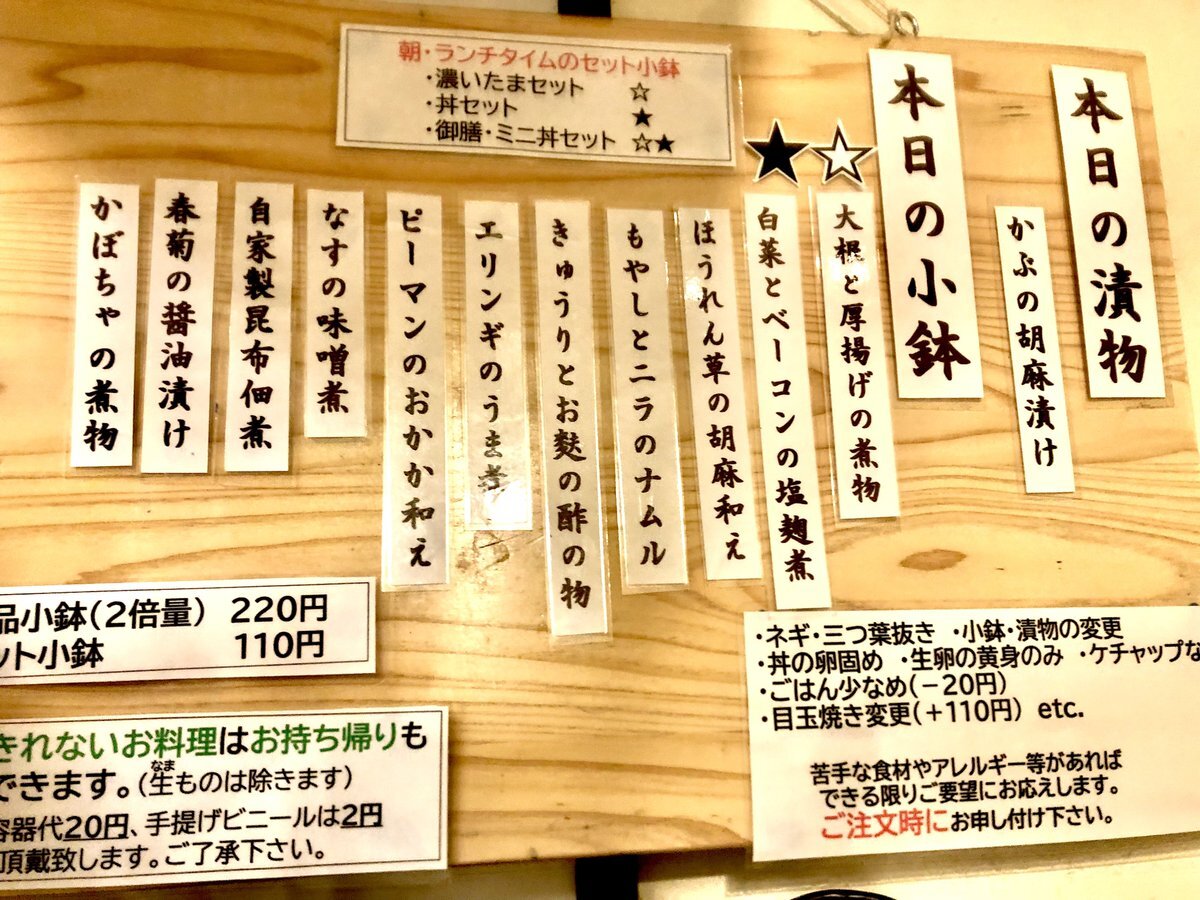 本日の漬物
かぶの胡麻漬け
本日の小鉢
☆
大根と厚揚げの煮物
★
白菜とベーコンの塩麹煮
ほうれん草の胡麻和え
もやしとニラのナムル
きゅうりとお麩の酢の物
エリンギのうま煮
ピーマンのおかか和え
なすの味噌煮
自家製昆布佃煮
春菊の醤油漬け
かぼちゃの煮物
朝・ランチタイムのセット小鉢
・濃いたまセット ☆
・丼セット ★
・御膳・ミニ丼セット ☆★
品小鉢(2倍量) 220円
ット小鉢 110円
きれないお料理はお持ち帰りも
できます。(生ものは除きます)
なま
容器代20円、手提げビニールは2円
頂戴致します。ご了承下さい。
・ネギ・三つ葉抜き ・小鉢・漬物の変更
・丼の卵固め ・生卵の黄身のみ ・ケチャップな
・ごはん少なめ(−20円)
・目玉焼き変更(+110円) etc.
苦手な食材やアレルギー等があれば
できる限りご要望にお応えします。
ご注文時にお申し付け下さい。